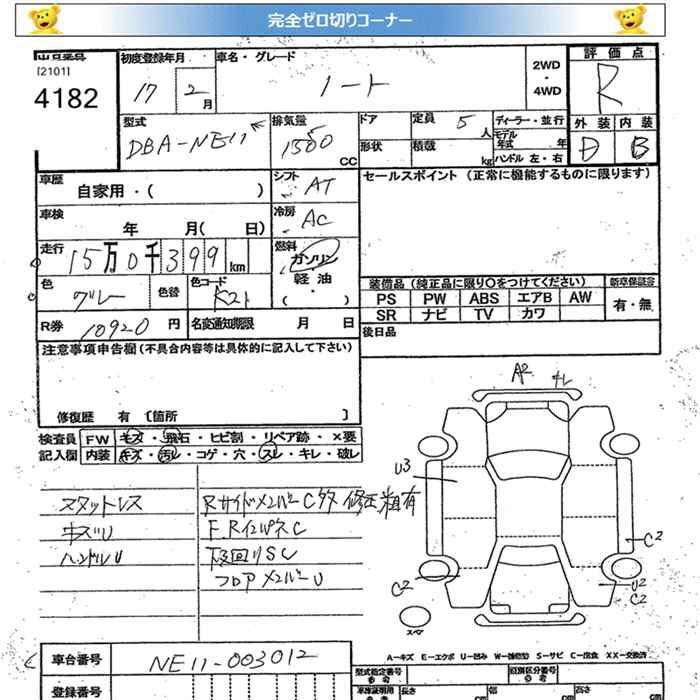 完全ゼロ切りコーナー
[2101]
4182
初度登録年月
17 2 月
車名・グレード
ノート
2WD
・
4WD
評価点
R
型式
DBA-NE11
排気量
1500
CC
ドア
定員
5 人
ディーラー・並行
モデル
年式 年
外装 内装
D B
形状
積載
kg
ハンドル 左・右
車歴
自家用・( )
シフト
AT
セールスポイント (正常に機能するものに限ります)
車検
年 月( 日)
冷房
AC
走行
15万0千399 km
燃料
ガソリン
軽油
( ・ )
色
グレー
色替
色コード
K21
装備品 (純正品に限り○をつけてください)
新車保証書
PS PW ABS エアB AW
有・無
SR ナビ TV カワ
R券 10920 円
名変通知期限 月 日
後日品
注意事項申告欄 (不具合内容等は具体的に記入して下さい)
修復歴 有 〔箇所 〕
検査員
記入欄
FW キズ・飛石・ヒビ割・リペア跡・×要
内装 キズ・汚レ・コゲ・穴・スレ・キレ・破レ
スタットレス
キズU
ハンドルU
RサイドメンバーC
修正 有
F.RインパネC
下回りSC
フロアメンバーU
A2
U3
C2
C2
U2
C2
スペア
A-キズ E-エクボ U-凹み W-補修跡 S-サビ C-腐食 XX-交換済
車台番号
NE11-003012
登録番号
型式指定番号
参考
類別区分番号
参考
長さ
cm
幅
cm
高さ
cm